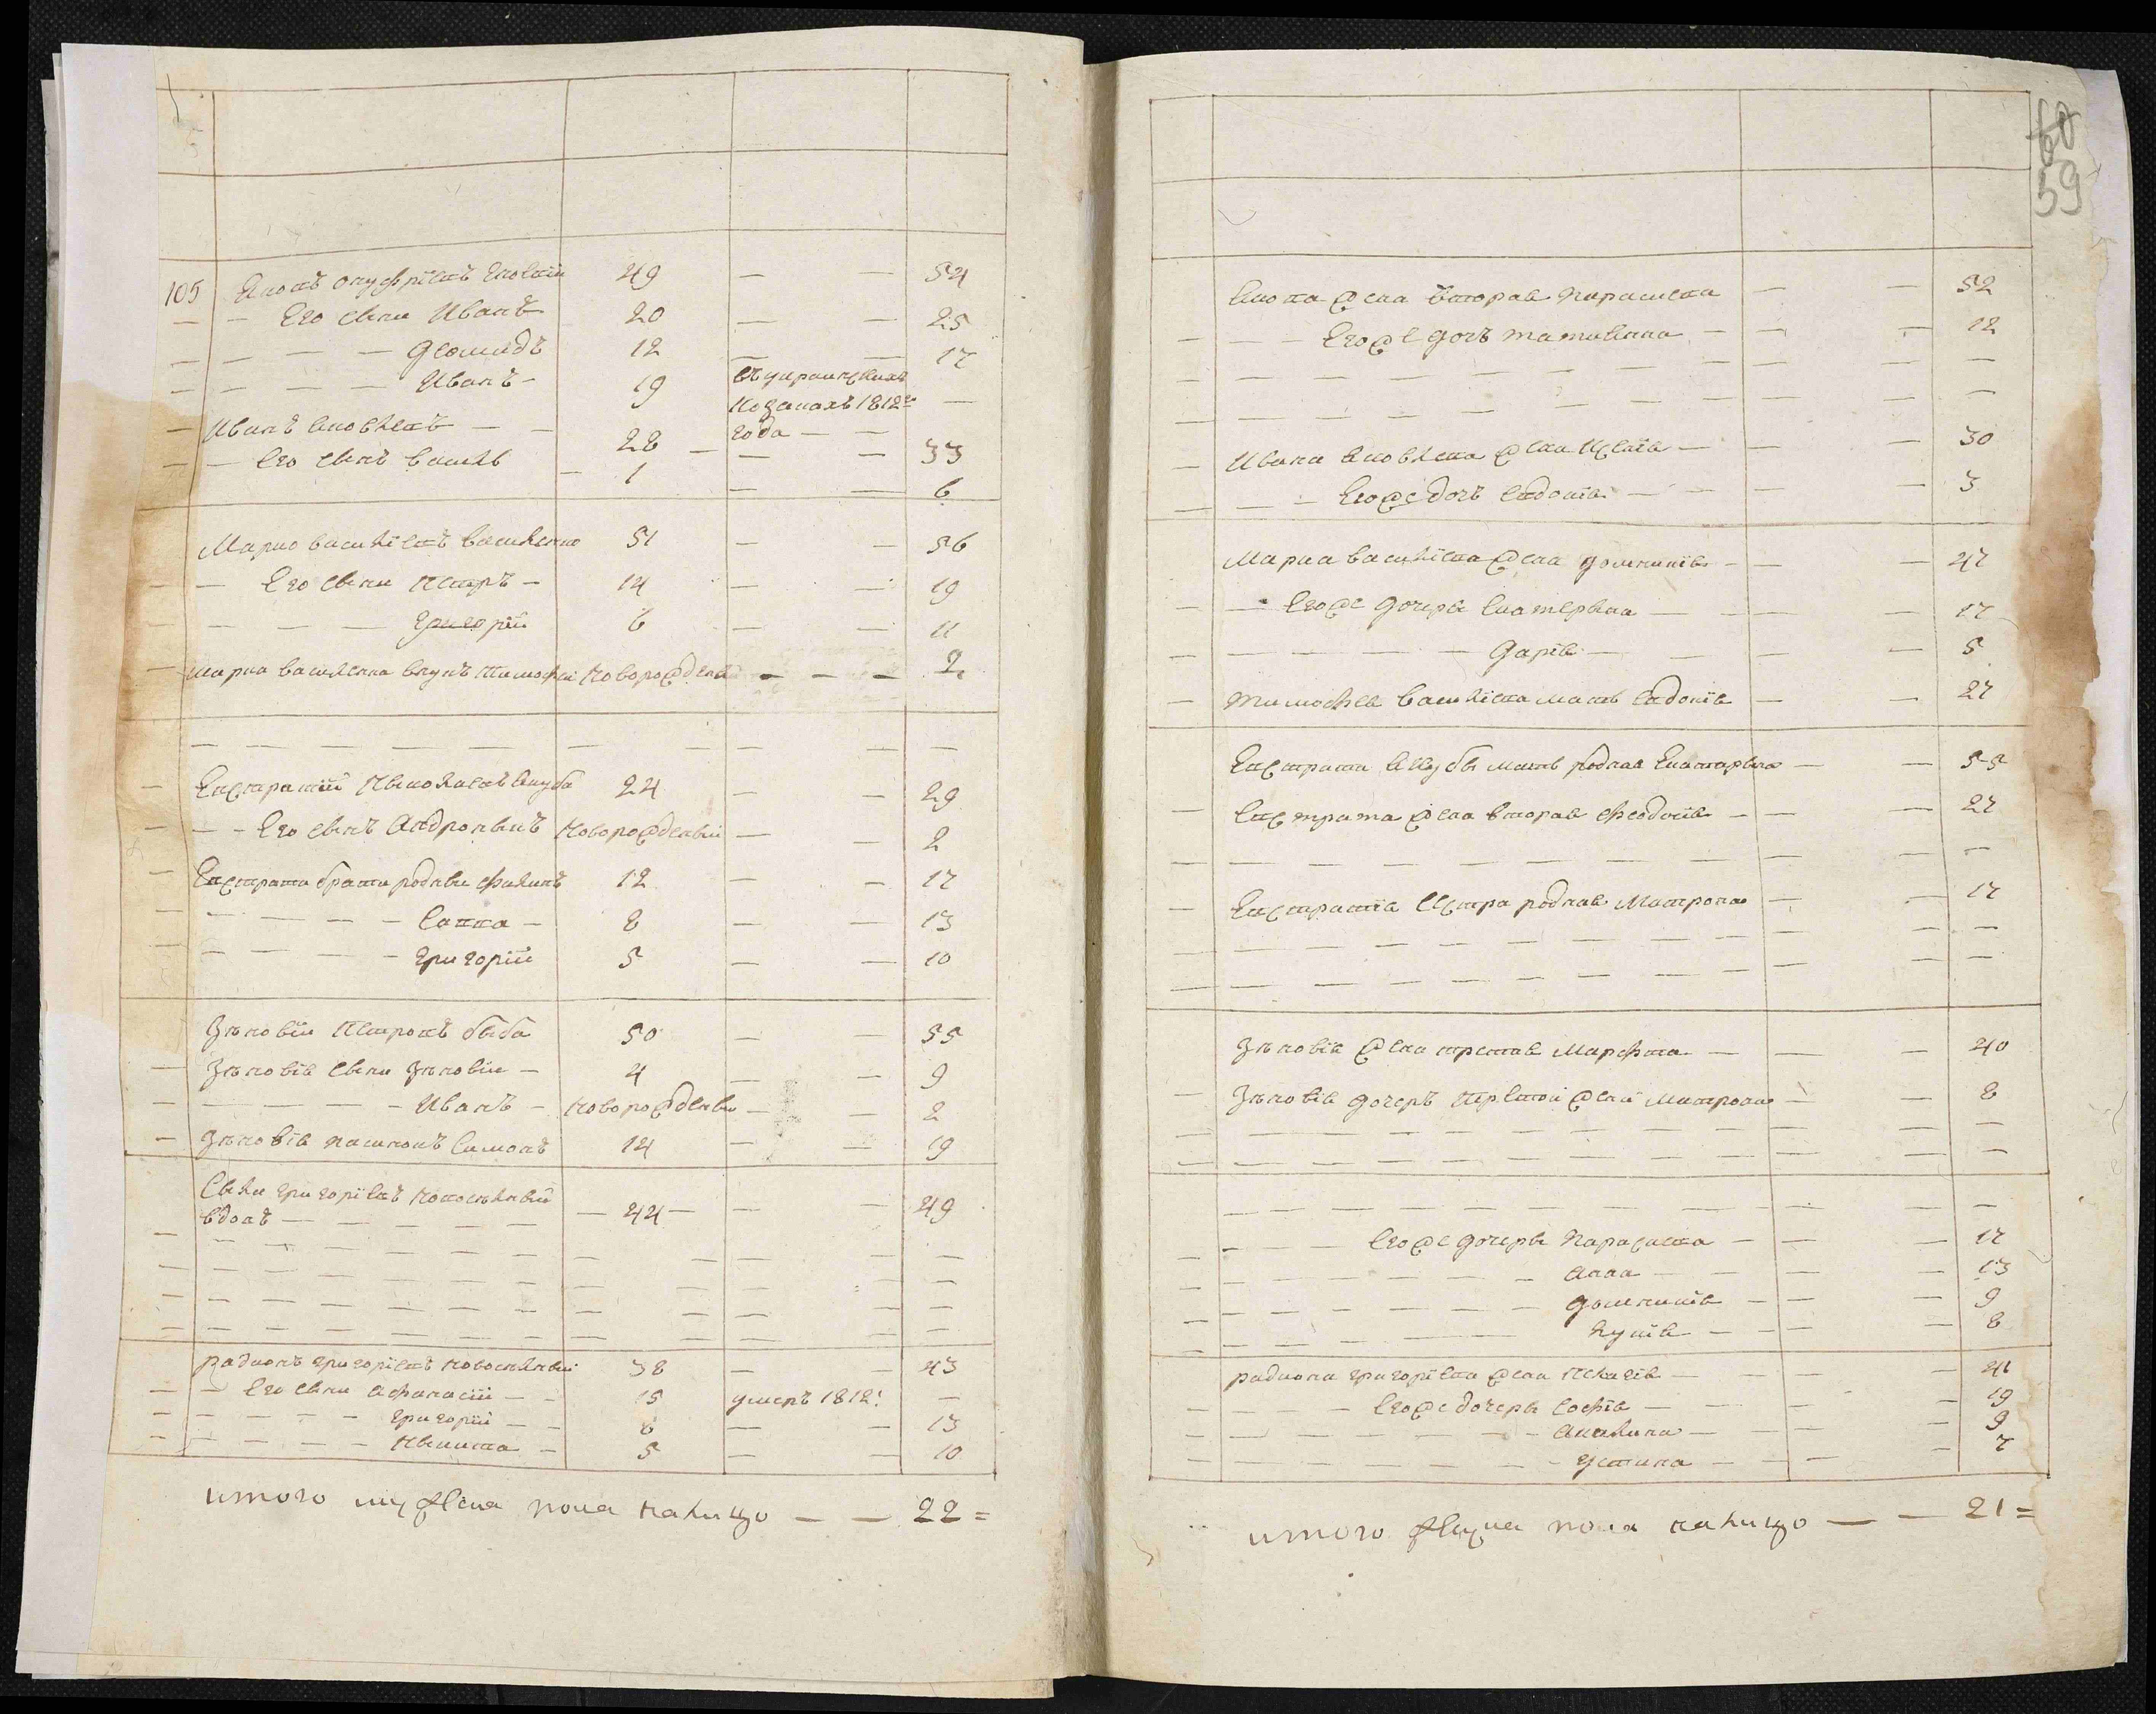 105 Яковъ Онуфріевъ 49 — — 54
— — Его сыни Иванъ 20 — — 25
— — — — Деомидъ 12 — — 17
— — — — Иванъ — 19 въ украинскихъ козакахъ 1812го года — —
— Иванъ Яковлевъ — — 28 — — 33
— — Его сынъ Василь — 1 — — 6
Марко Василіевъ Василенко 51 — — 56
— — Его сыни Петръ — 14 — — 19
— — — — Григорій 6 — — 11
— Марка Василенка внукъ Тимофей новорожденый — — — 2
— — — — — — — — — — —
— Евстратій Якуба 24 — — 29
— — — Его сынъ Андроникъ новорожденый — — 2
— Евстрата брати родные Филипъ 12 — — 17
— — — — — Савва — 8 — — 13
— — — — — Григорій 5 — — 10
Зѣновій Петровъ Быба 50 — — 55
— Зѣновія сыни Зѣновій — 4 — — 9
— — — — — Иванъ — новорожденый — — 2
— Зѣновія пасинокъ Симонъ 14 — — 19
Григоріевъ
вдовъ — — — — — — 44 — — — 49
— — — — — — — — — — —
— — — — — — — — — — —
— — — — — — — — — — —
— — — — — — — — — — —
Радионъ Григоріевъ 38 — — 43
— — Его сыни Афанасій — — 15 умеръ 1812: —
— — — — — Григорій — — 8 — — 13
— — — — — Никита — 5 — — 10
итого мужеска пола налицо — — 22 =
60
59
Якова жена вторая Параскева — — 52
— — — Его же дочь Татияна — — — 12
— — — — — — — — — — —
— — — — — — — — — — —
— Ивана Яковлева жена Ксенія — — — 30
— — — Его же дочь Евдокія — — — — 3
Марка Василіева жена Домникія — — — 47
— — Его же дочери Екатерина — — — 17
— — — — — — Дарія — — — — 5
— Тимофея Василіева мать Евдокія — — 27
Евстрата Якубы мать родная Екатерина — — 55
— Евстрата жена вторая Феодосія — — — 27
— — — — — — — — — — —
— Евстратія сестра родная Матрона — — 17
— — — — — — — — — — —
— — — — — — — — — — —
Зѣновія жена третая Марфта — — — 40
— Зѣновія дочеръ первой жени Матрона — — 8
— — — — — — — — — — —
— — — — — — — — — — —
— — — — — — — — — — —
— — — — Его же дочери Параскева — — — 17
— — — — — — — — Анна — — — — 13
— — — — — — — — Домникія — — — 9
— — — — — — — Лукія — — — — 8
Радиона Григоріева жена Пелагія — — — 41
— — — — Его же дочери Софія — — — — 19
— — — — — — — — Акилина — — — 9
— — — — — — — — Устина — — — — 7
итого женска пола налицо — — 21 =